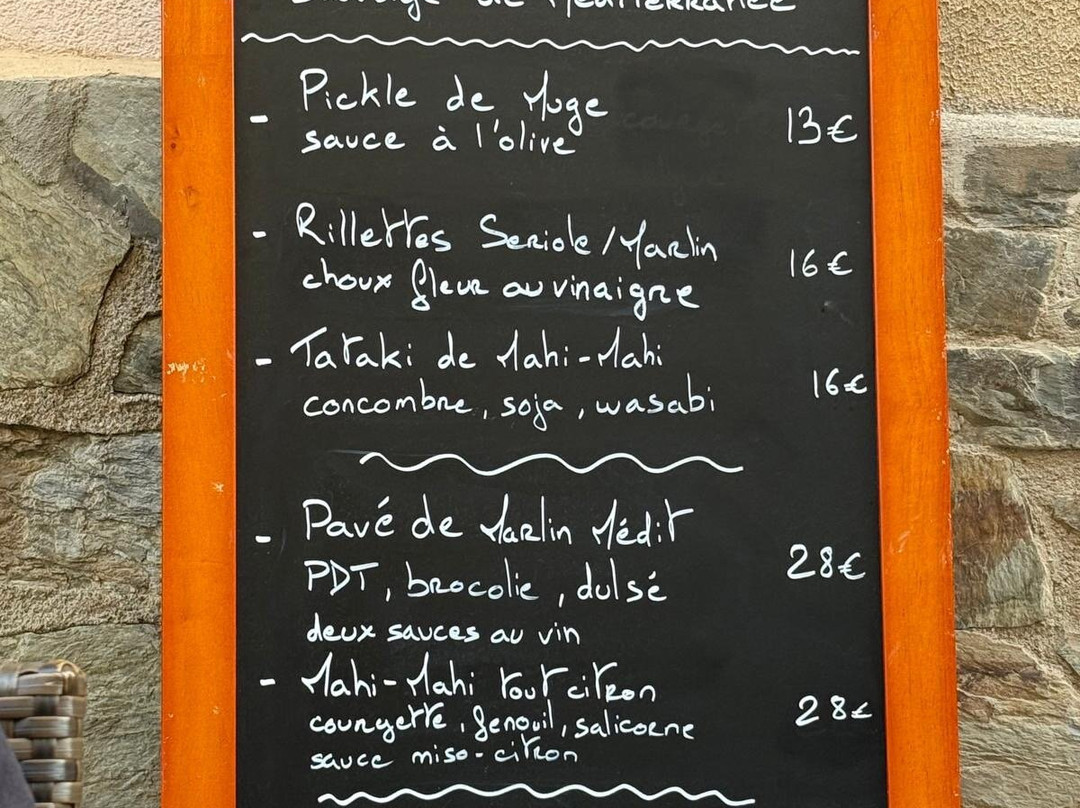 de Méditerranée
- Pickle de Muge
sauce à l'olive
13€
- Rillettes Seriole/Marlin
choux fleur au vinaigre
16€
- Tataki de Mahi-Mahi
concombre, soja, wasabi
16€
- Pavé de Marlin Médit
PDT, brocolie, dulsé
deux sauces au vin
28€
- Mahi-Mahi tout citron
courgette, fenouil, salicorne
sauce miso-citron
28€